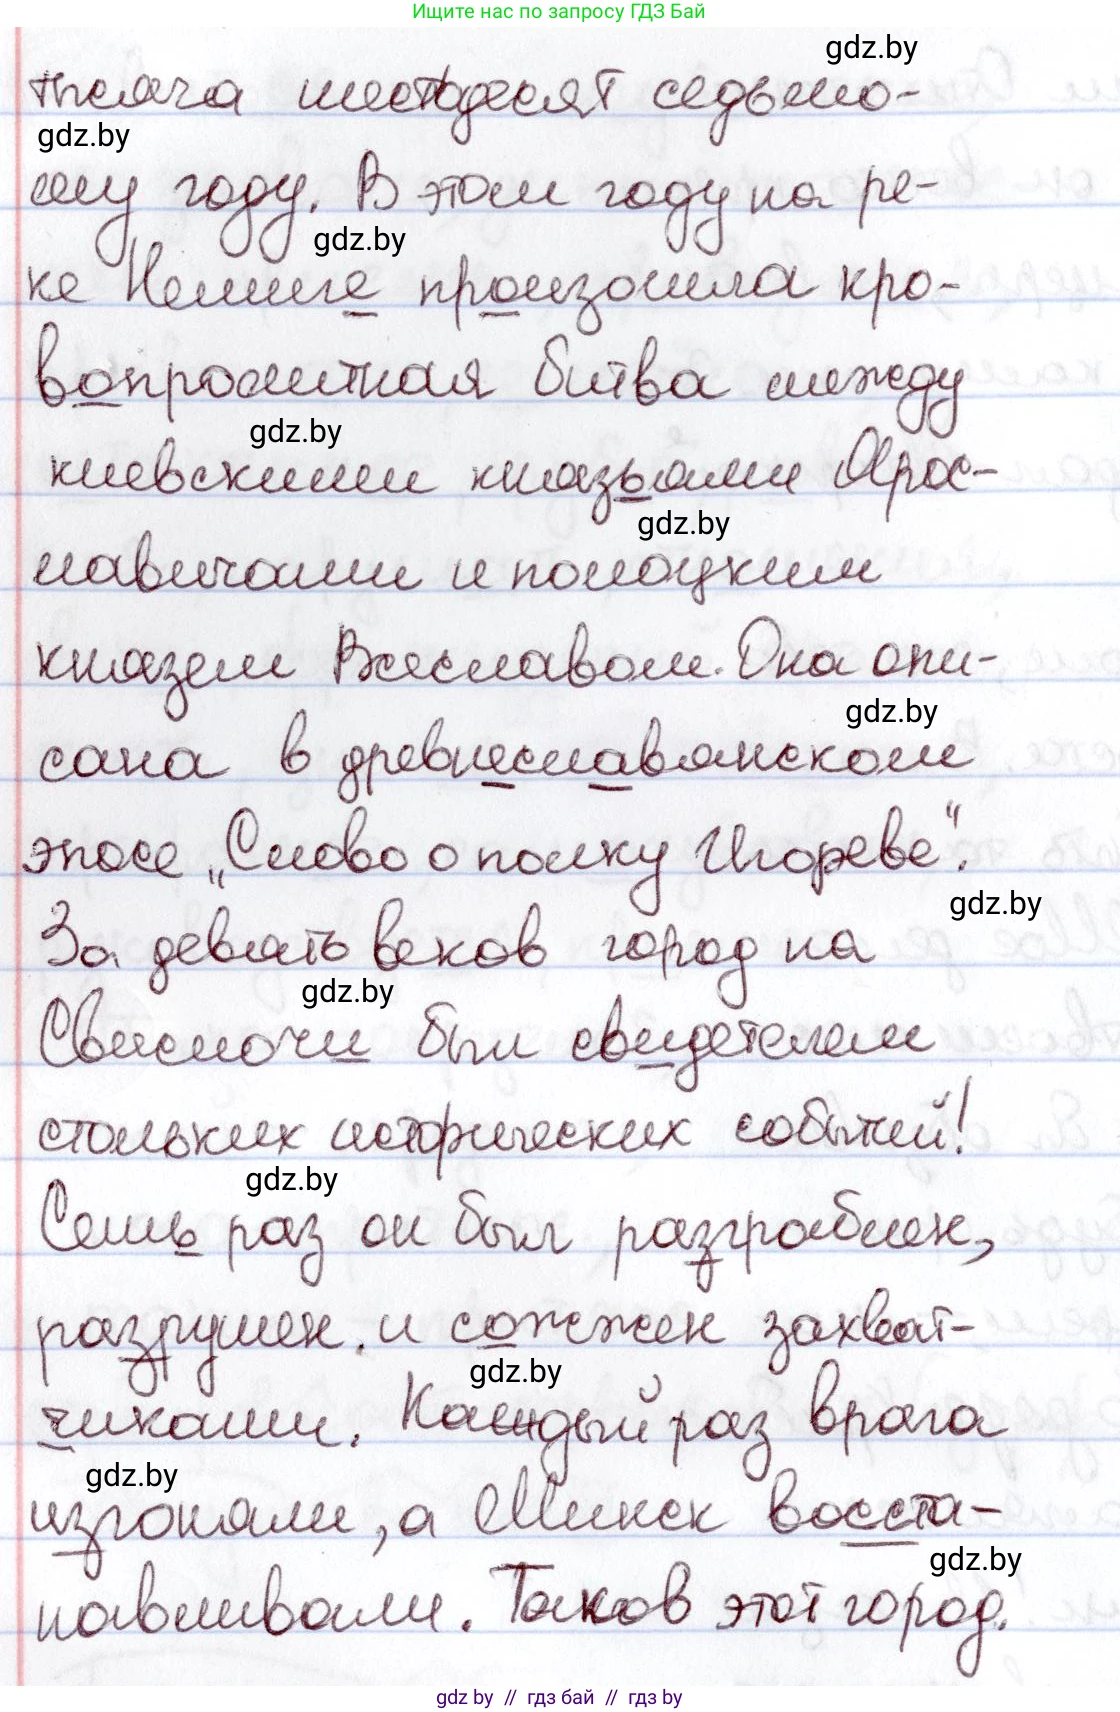 Ищите нас по запросу ГДЗ Бай
gdz.by
тысяча шестьдесят седьмо-
gdz.by
му году. В этом году на ре-
gdz.by
ке Немиге произошла кро-
вопролитная битва между
gdz.by
киевскими князьями Ярос-
gdz.by
лавичами и полоцким
князем Всеславом. Она опи-
gdz.by
сана в древнеславянском
эпосе „Слово о полку Игореве“.
gdz.by
За девять веков город на
gdz.by
Свислочи был свидетелем
стольких исторических событий!
gdz.by
Семь раз он был разграблен,
разрушен и сожжен захват-
gdz.by
чиками. Каждый раз врага
gdz.by
изгоняли, а Минск восста-
gdz.by
навливали. Таков этот город.
gdz by // гдз бай // gdz by